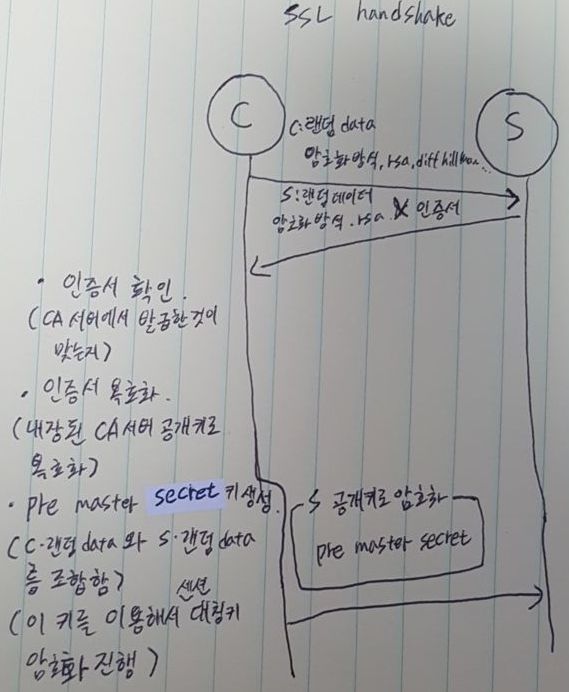 SSL handshake
C
S
C:랜덤 data
암호화 방식, rsa, diffhillman...
S:랜덤데이터
암호화 방식. rsa. 인증서
· 인증서 확인.
(CA 서버에서 발급한것이
맞는지)
· 인증서 복호화.
(내장된 CA서버 공개키로
복호화)
· pre master secret 키생성.
(C·랜덤data 와 S·랜덤data
를 조합함)
세션
(이 키를 이용해서 대칭키
암호화 진행)
S 공개키로 암호화
pre master secret